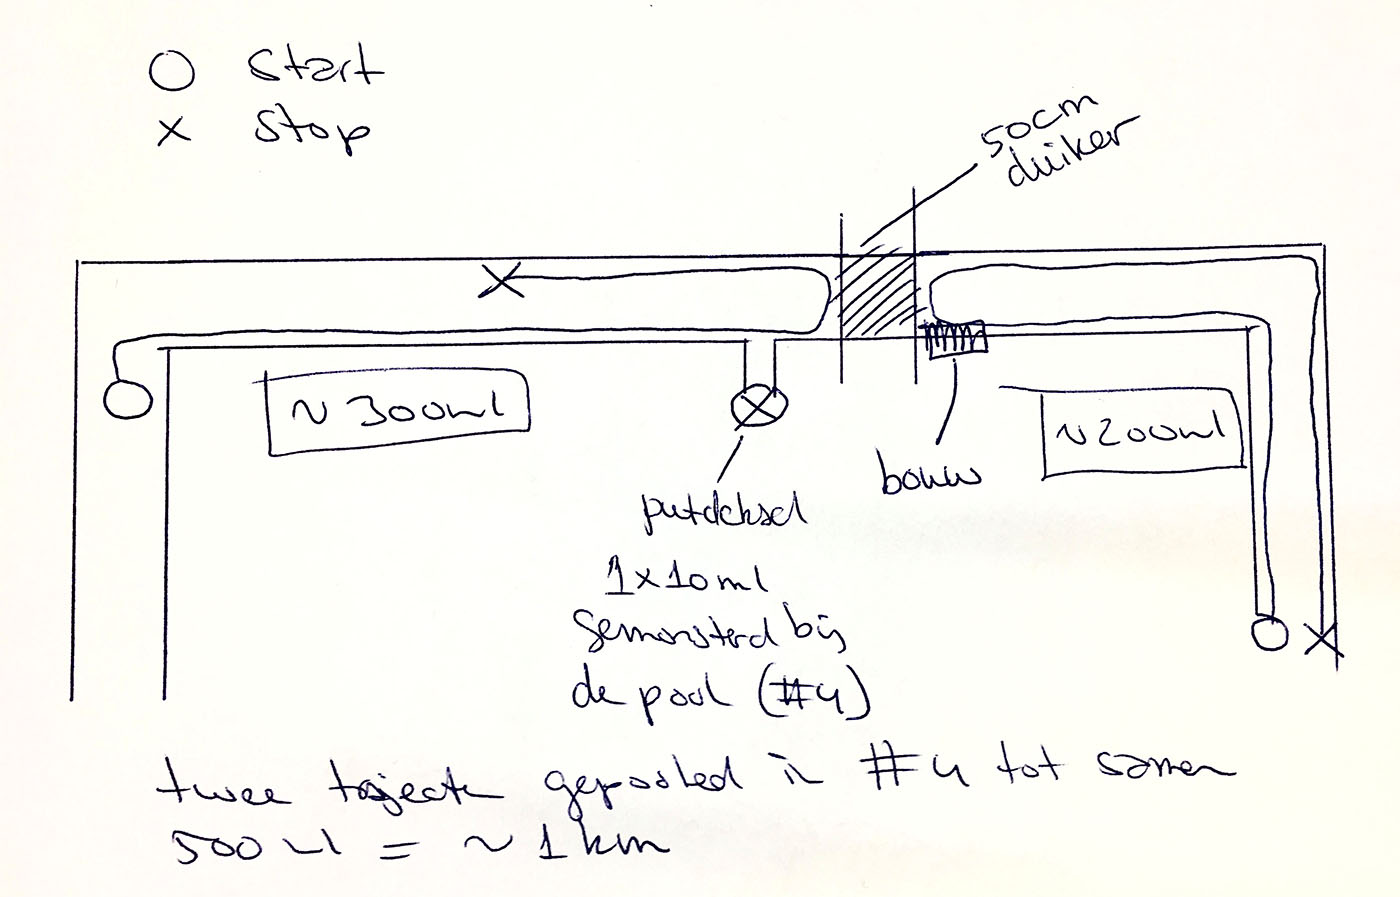 Start
x Stop
50cm
duiker
~ 300ml
~ 200ml
bouw
putdeksel
1x10ml
gemonsterd bij
de pool (#4)
twee trajecten gepooled in #4 tot samen
500 ml = ~ 1 km